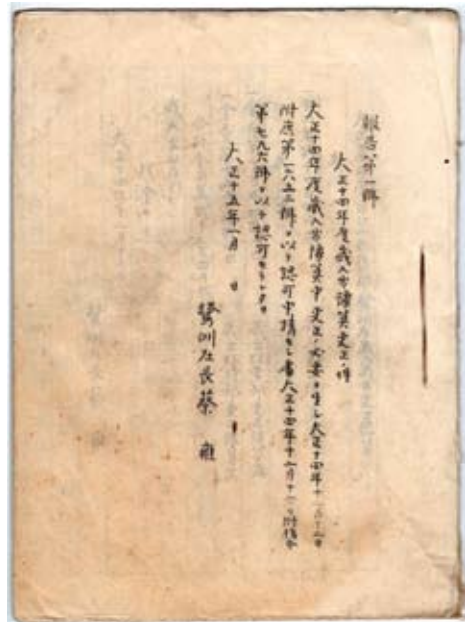 報告第一號
大正十四年度歲入出豫算更正ノ件
大正十四年度歲入出豫算中更正ノ必要ヲ生シ大正十四年十一月十二日
附庶第一六五三號ヲ以テ認可申請セシ書大正十四年十二月十一日附指令
第七九六號ヲ以テ認可セラレタリ
大正十五年一月 日
鶯洲庄長蔡